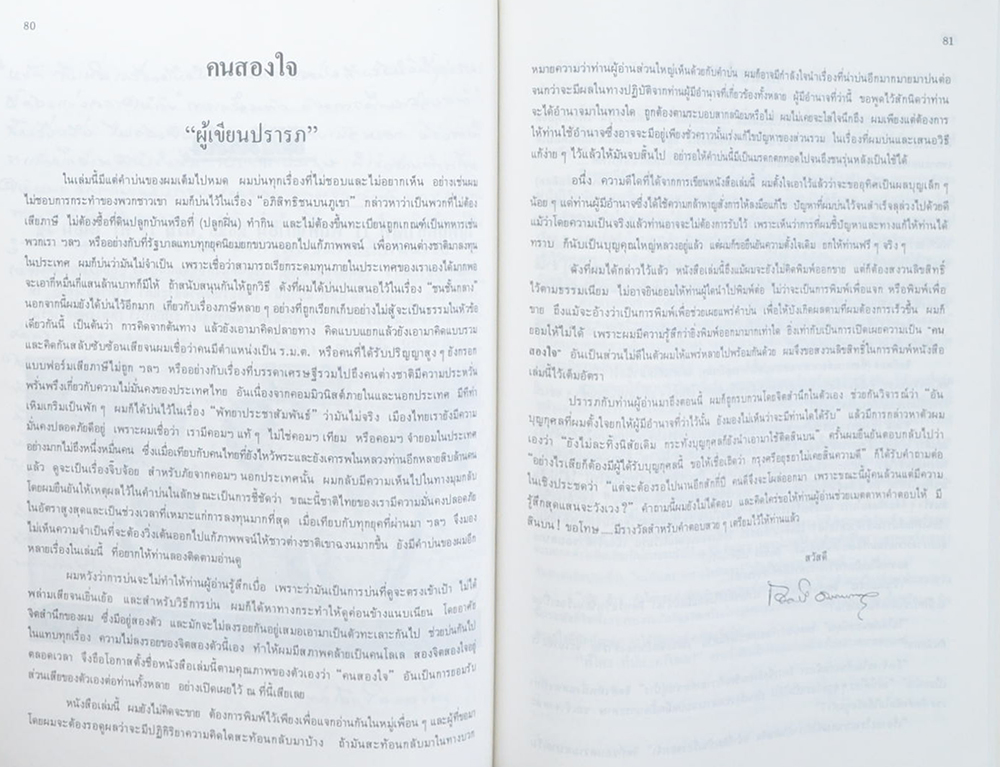 80
คนสองใจ
“ผู้เขียนปรารภ”
ในเล่มนี้มีแต่คำบ่นของผมเต็มไปหมด ผมบ่นทุกเรื่องที่ไม่ชอบและไม่อยากเห็น อย่างเช่นผม
ไม่ชอบการกระทำของพวกชาวเขา ผมก็บ่นไว้ในเรื่อง “อภิสิทธิชนบนภูเขา” กล่าวหาว่าเป็นพวกที่ไม่ต้อง
เสียภาษี ไม่ต้องซื้อที่ดินปลูกบ้านหรือที่ (ปลูกฝิ่น) ทำกิน และไม่ต้องขึ้นทะเบียนถูกเกณฑ์เป็นทหารเช่น
พวกเรา ฯลฯ หรืออย่างกับที่รัฐบาลแทบทุกยุคนิยมยกขบวนออกไปแก้ภาพพจน์ เพื่อหาคนต่างชาติมาลงทุน
ในประเทศ ผมก็บ่นว่ามันไม่จำเป็น เพราะเชื่อว่าสามารถเรียกระดมทุนภายในประเทศของเราเองได้มากพอ
จะเอากี่หมื่นกี่แสนล้านบาทก็มีให้ ถ้าสนับสนุนกันให้ถูกวิธี ดังที่ผมได้บ่นปนเสนอไว้ในเรื่อง “ชนชั้นกลาง”
นอกจากนี้ผมยังได้บ่นไว้อีกมาก เกี่ยวกับเรื่องภาษีหลาย ๆ อย่างที่ถูกเรียกเก็บอย่างไม่สู้จะเป็นธรรมในหัวข้อ
เดียวกันนี้ เป็นต้นว่า การคิดจากต้นทาง แล้วยังเอามาคิดปลายทาง คิดแบบแยกแล้วยังเอามาคิดแบบรวม
และคิดกันสลับซับซ้อนเสียจนผมเชื่อว่าคนมีตำแหน่งเป็น ร.ม.ต. หรือคนที่ได้รับปริญญาสูง ๆ ยังกรอก
แบบฟอร์มเสียภาษีไม่ถูก ฯลฯ หรืออย่างกับเรื่องที่บรรดาเศรษฐีรวมไปถึงคนต่างชาติมีความประหวั่น
พรั่นพรึงเกี่ยวกับความไม่มั่นคงของประเทศไทย อันเนื่องจากคอมมิวนิสต์ภายในและนอกประเทศ มีทีท่า
เหิมเกริมเป็นพัก ๆ ผมก็ได้บ่นไว้ในเรื่อง “พัทยาประชาสัมพันธ์” ว่ามันไม่จริง เมืองไทยเรายังมีความ
มั่นคงปลอดภัยดีอยู่ เพราะผมเชื่อว่า เรามีคอมฯ แท้ ๆ ไม่ใช่คอมฯ เทียม หรือคอมฯ จำยอมในประเทศ
อย่างมากไม่ถึงหนึ่งหมื่นคน ซึ่งเมื่อเทียบกับคนไทยที่ยังไหว้พระและยังเคารพในหลวงท่านอีกหลายสิบล้านคน
แล้ว ดูจะเป็นเรื่องจิ๊บจ้อย สำหรับภัยจากคอมฯ นอกประเทศนั้น ผมกลับมีความเห็นไปในทางมุมกลับ
โดยผมยืนยันให้เหตุผลไว้ในคำบ่นในลักษณะเป็นการชี้ชัดว่า ขณะนี้ชาติไทยของเรามีความมั่นคงปลอดภัย
ในอัตราสูงสุดและเป็นช่วงเวลาที่เหมาะแก่การลงทุนมากที่สุด เมื่อเทียบกับทุกยุคที่ผ่านมา ฯลฯ จึงมอง
ไม่เห็นความจำเป็นที่จะต้องวิ่งเต้นออกไปแก้ภาพพจน์ให้ชาวต่างชาติเขาฉงนมากขึ้น ยังมีคำบ่นของผมอีก
หลายเรื่องในเล่มนี้ ที่อยากให้ท่านลองติดตามอ่านดู
ผมหวังว่าการบ่นจะไม่ทำให้ท่านผู้อ่านรู้สึกเบื่อ เพราะว่ามันเป็นการบ่นที่ดูจะตรงเข้าเป้า ไม่ได้
พล่ามเสียจนเยิ่นเย้อ และสำหรับวิธีการบ่น ผมก็ได้หาทางกระทำให้ดูค่อนข้างแนบเนียน โดยอาศัย
จิตสำนึกของผม ซึ่งมีอยู่สองตัว และมักจะไม่ลงรอยกันอยู่เสมอเอามาเป็นตัวทะเลาะกันไป ช่วยบ่นกันไป
ในแทบทุกเรื่อง ความไม่ลงรอยของจิตสองตัวนี้เอง ทำให้ผมมีสภาพคล้ายเป็นคนโลเล สองจิตสองใจอยู่
ตลอดเวลา จึงถือโอกาสตั้งชื่อหนังสือเล่มนี้ตามคุณภาพของตัวเองว่า “คนสองใจ” อันเป็นการยอมรับ
ส่วนเสียของตัวเองต่อท่านทั้งหลาย อย่างเปิดเผยไว้ ณ ที่นี้เสียเลย
หนังสือเล่มนี้ ผมยังไม่คิดจะขาย ต้องการพิมพ์ไว้เพียงเพื่อแจกอ่านกันในหมู่เพื่อน ๆ และผู้ที่ขอมา
โดยผมจะต้องรอดูผลว่าจะมีปฏิกิริยาความคิดใดสะท้อนกลับมาบ้าง ถ้ามันสะท้อนกลับมาในทางบวก
81
หมายความว่าท่านผู้อ่านส่วนใหญ่เห็นด้วยกับคำบ่น ผมก็อาจมีกำลังใจนำเรื่องที่น่าบ่นอีกมากมายมาบ่นต่อ
จนกว่าจะมีผลในทางปฏิบัติจากท่านผู้มีอำนาจที่เกี่ยวข้องทั้งหลาย ผู้มีอำนาจที่ว่านี้ ขอพูดไว้สักนิดว่าท่าน
จะได้อำนาจมาในทางใด ถูกต้องตามระบอบสากลนิยมหรือไม่ ผมไม่เคยจะใส่ใจนึกถึง ผมเพียงแต่ต้องการ
ให้ท่านใช้อำนาจซึ่งอาจจะมีอยู่เพียงชั่วคราวนั้นเร่งแก้ไขปัญหาของส่วนรวม ในเรื่องที่ผมบ่นและเสนอวิธี
แก้ง่าย ๆ ไว้แล้วให้มันจบสิ้นไป อย่ารอให้คำบ่นนี้มีเป็นมรดกตกทอดไปจนถึงชนรุ่นหลังเป็นใช้ได้
อนึ่ง ความดีใดที่ได้จากการเขียนหนังสือเล่มนี้ ผมตั้งใจเอาไว้แล้วว่าจะขออุทิศเป็นผลบุญเล็ก ๆ
น้อย ๆ แด่ท่านผู้มีอำนาจซึ่งได้ใช้ความกล้าหาญสั่งการให้ลงมือแก้ไข ปัญหาที่ผมบ่นไว้จนสำเร็จลุล่วงไปด้วยดี
แม้ว่าโดยความเป็นจริงแล้วท่านอาจจะไม่ต้องการรับไว้ เพราะเห็นว่าการที่ผมชี้ปัญหาและทางแก้ให้ท่านได้
ทราบ ก็นับเป็นบุญคุณใหญ่หลวงอยู่แล้ว แต่ผมก็ขอยืนยันความตั้งใจเดิม ยกให้ท่านฟรี ๆ จริง ๆ
ดังที่ผมได้กล่าวไว้แล้ว หนังสือเล่มนี้ถึงแม้ผมจะยังไม่คิดพิมพ์ออกขาย แต่ก็ต้องสงวนลิขสิทธิ์
ไว้ตามธรรมเนียม ไม่อาจยินยอมให้ท่านผู้ใดนำไปพิมพ์ต่อ ไม่ว่าจะเป็นการพิมพ์เพื่อแจก หรือพิมพ์เพื่อ
ขาย ถึงแม้จะอ้างว่าเป็นการพิมพ์เพื่อช่วยเผยแพร่คำบ่น เพื่อให้บังเกิดผลตามที่ผมต้องการเร็วขึ้น ผมก็
ยอมให้ไม่ได้ เพราะผมมีความรู้สึกว่ายิ่งพิมพ์ออกมามากเท่าใด ยิ่งเท่ากับเป็นการเปิดเผยความเป็น “คน
สองใจ” อันเป็นส่วนไม่ดีในตัวผมให้แพร่หลายไปพร้อมกันด้วย ผมจึงขอสงวนลิขสิทธิ์ในการพิมพ์หนังสือ
เล่มนี้ไว้เต็มอัตรา
ปรารภกับท่านผู้อ่านมาถึงตอนนี้ ผมก็ถูกรบกวนโดยจิตสำนึกในตัวเอง ช่วยกันวิจารณ์ว่า “อัน
บุญกุศลที่ผมตั้งใจยกให้ท่านผู้มีอำนาจที่ว่าไว้นั้น ยังมองไม่เห็นว่าจะมีท่านใดได้รับ” แล้วมีการกล่าวหาตัวผม
เองว่า “ยังไม่ละทิ้งนิสัยเดิม กระทั่งบุญกุศลก็ยังนำเอามาใช้ติดสินบน” ครั้นผมยืนยันตอบกลับไปว่า
“อย่างไรเสียก็ต้องมีผู้ได้รับบุญกุศลนี้ ขอให้เชื่อเถิดว่า กรุงศรีอยุธยาไม่เคยสิ้นความดี” ก็ได้รับคำถามต่อ
ในเชิงประชดว่า “แต่จะต้องรอไปนานอีกสักกี่ปี คนดีจึงจะโผล่ออกมา เพราะขณะนี้ผู้คนล้วนแต่มีความ
รู้สึกสุดแสนจะวังเวง?” คำถามนี้ผมยังไม่ได้ตอบ และคิดใคร่ขอให้ท่านผู้อ่านช่วยเมตตาหาคำตอบให้ มี
สินบน! ขอโทษ....มีรางวัลสำหรับคำตอบสวย ๆ เตรียมไว้ให้ท่านแล้ว
สวัสดี